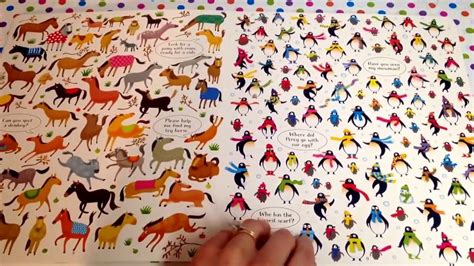 Look for a
pony with reins,
ready for a ride.
Can you spot
a donkey?
Please help
me find my
toy horse.
Have you seen
my snowman?
Where did
Percy go with
our egg?
Who has the
scarf?